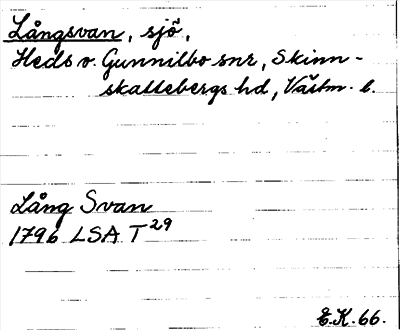 Långsvan, sjö,
Heds o. Gunnilbo snr, Skinn-
skattebergs hd, Västm. l.
Lång Svan
1796 LSA T29
E.K. 66.